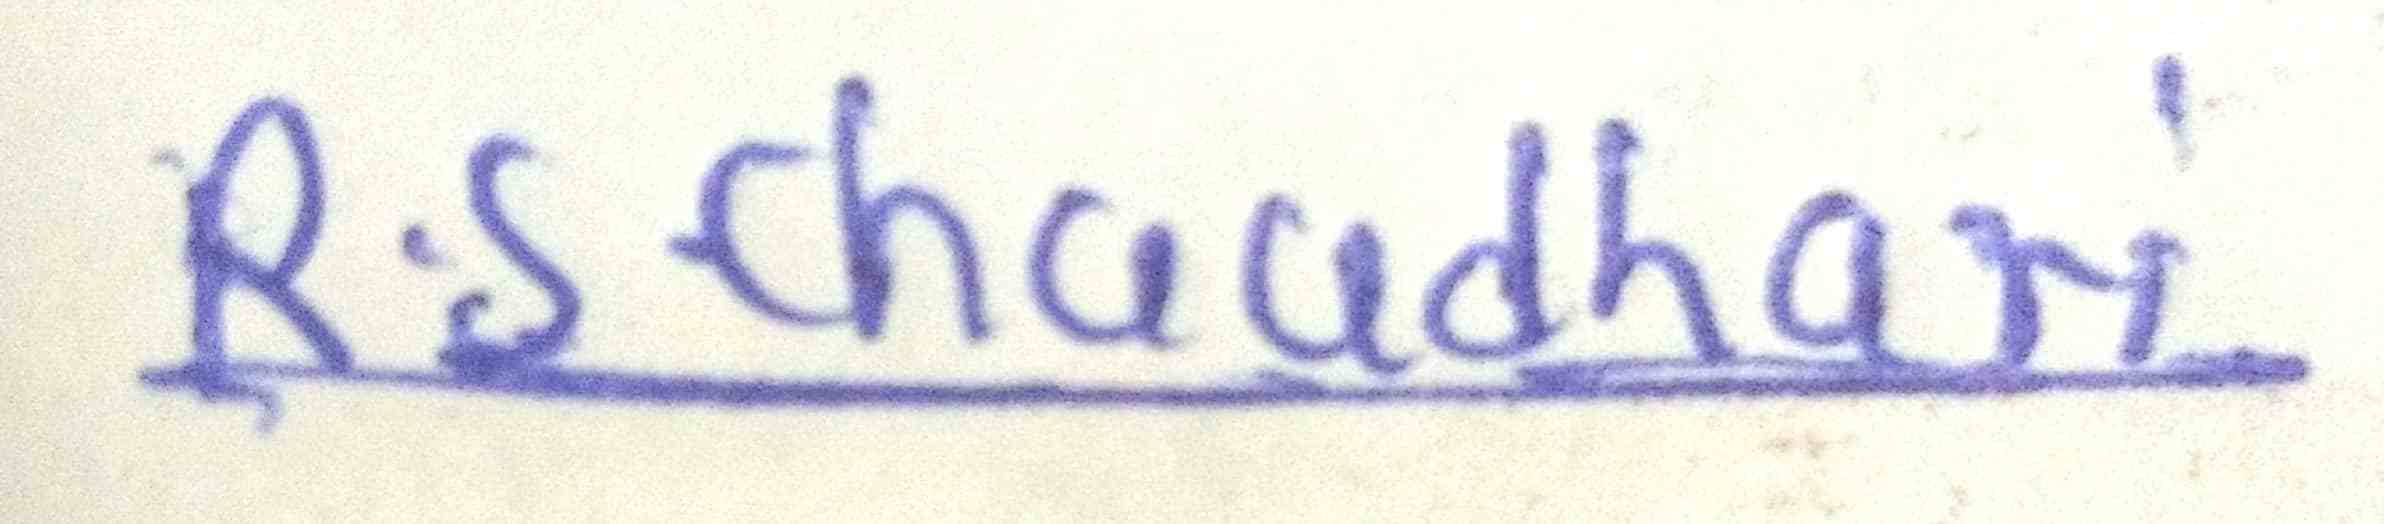 R.S Chaudhari